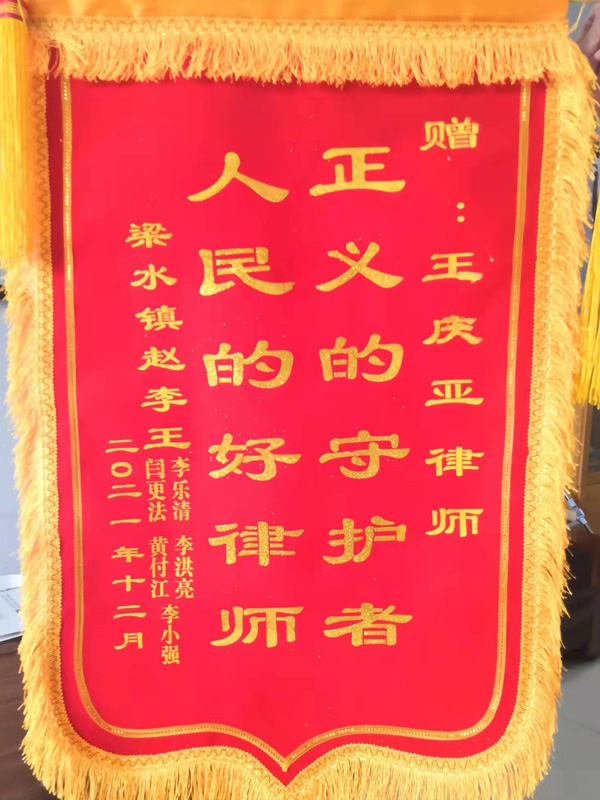 赠：王庆亚律师
正义的守护者
人民的好律师
梁水镇赵李王
李乐清 李洪亮 李小强
闫更法 黄付江
二〇二一年十二月